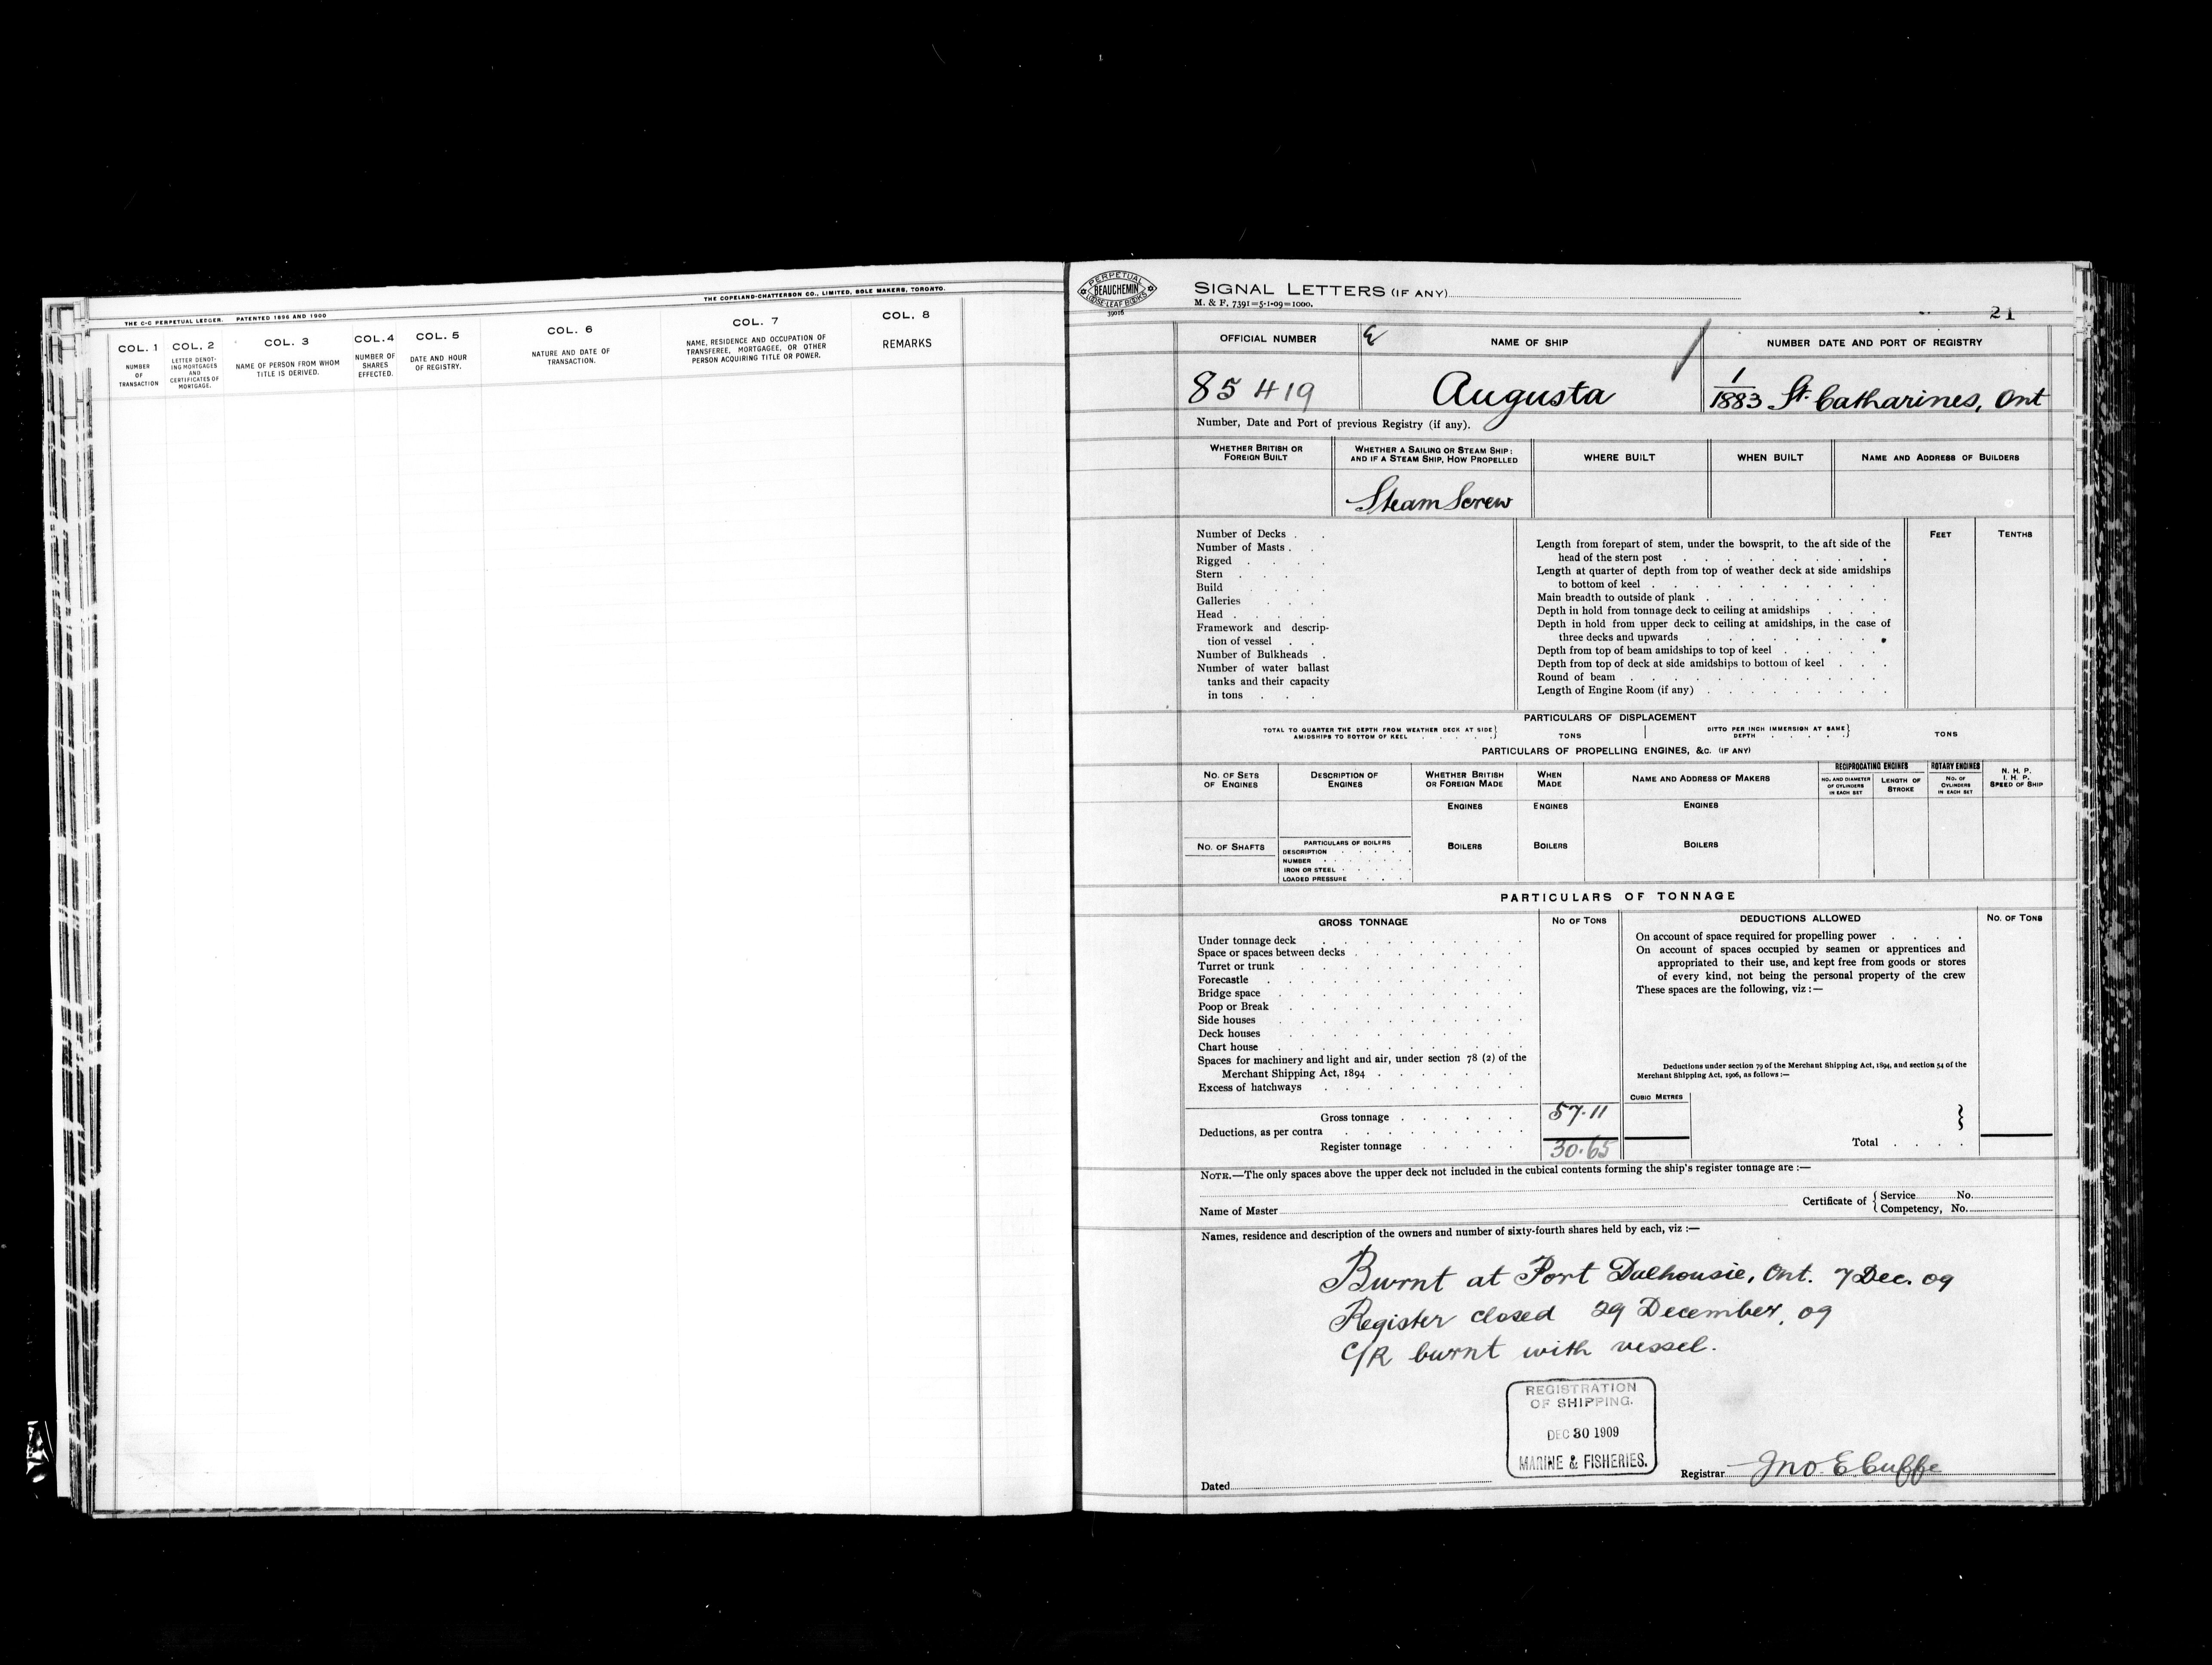 THE C-C PERPETUAL LEDGER. PATENTED 1896 AND 1900
THE COPELAND-CHATTERSON CO., LIMITED, SOLE MAKERS, TORONTO.
COL. 1
NUMBER
OF
TRANSACTION
COL. 2
LETTER DENOT-
ING MORTGAGES
AND
CERTIFICATES OF
MORTGAGE.
COL. 3
NAME OF PERSON FROM WHOM
TITLE IS DERIVED.
COL. 4
NUMBER OF
SHARES
EFFECTED.
COL. 5
DATE AND HOUR
OF REGISTRY.
COL. 6
NATURE AND DATE OF
TRANSACTION.
COL. 7
NAME, RESIDENCE AND OCCUPATION OF
TRANSFEREE, MORTGAGEE, OR OTHER
PERSON ACQUIRING TITLE OR POWER.
COL. 8
REMARKS
PERPETUAL
BEAUCHEMIN
LOOSE LEAF BOOKS
39016
SIGNAL LETTERS (IF ANY)
M. & F. 7391=5-1-09=1000.
21
OFFICIAL NUMBER
NAME OF SHIP
NUMBER DATE AND PORT OF REGISTRY
85 419
Augusta
1/1883 St. Catharines, Ont
Number, Date and Port of previous Registry (if any).
WHETHER BRITISH OR
FOREIGN BUILT
WHETHER A SAILING OR STEAM SHIP:
AND IF A STEAM SHIP, HOW PROPELLED
WHERE BUILT
WHEN BUILT
NAME AND ADDRESS OF BUILDERS
Steam Screw
Number of Decks . .
Number of Masts . .
Rigged . . . .
Stern . . . .
Build . . . .
Galleries . . .
Head . . . . .
Framework and descrip-
tion of vessel . .
Number of Bulkheads .
Number of water ballast
tanks and their capacity
in tons . . .
FEET
TENTHS
Length from forepart of stem, under the bowsprit, to the aft side of the
head of the stern post
Length at quarter of depth from top of weather deck at side amidships
to bottom of keel
Main breadth to outside of plank
Depth in hold from tonnage deck to ceiling at amidships
Depth in hold from upper deck to ceiling at amidships, in the case of
three decks and upwards
Depth from top of beam amidships to top of keel
Depth from top of deck at side amidships to bottom of keel
Round of beam
Length of Engine Room (if any)
PARTICULARS OF DISPLACEMENT
TOTAL TO QUARTER THE DEPTH FROM WEATHER DECK AT SIDE
AMIDSHIPS TO BOTTOM OF KEEL
TONS
DITTO PER INCH IMMERSION AT SAME
DEPTH
TONS
PARTICULARS OF PROPELLING ENGINES, &C. (IF ANY)
NO. OF SETS
OF ENGINES
DESCRIPTION OF
ENGINES
WHETHER BRITISH
OR FOREIGN MADE
WHEN
MADE
NAME AND ADDRESS OF MAKERS
RECIPROCATING ENGINES
NO. AND DIAMETER
OF CYLINDERS
IN EACH SET
LENGTH OF
STROKE
ROTARY ENGINES
NO. OF
CYLINDERS
IN EACH SET
N. H. P.
I. H. P.
SPEED OF SHIP
ENGINES
ENGINES
ENGINES
NO. OF SHAFTS
PARTICULARS OF BOILERS
DESCRIPTION
NUMBER
IRON OR STEEL
LOADED PRESSURE
BOILERS
BOILERS
BOILERS
PARTICULARS OF TONNAGE
GROSS TONNAGE
NO OF TONS
DEDUCTIONS ALLOWED
NO. OF TONS
Under tonnage deck
Space or spaces between decks
Turret or trunk
Forecastle
Bridge space
Poop or Break
Side houses
Deck houses
Chart house
Spaces for machinery and light and air, under section 78 (2) of the
Merchant Shipping Act, 1894
Excess of hatchways
On account of space required for propelling power
On account of spaces occupied by seamen or apprentices and
appropriated to their use, and kept free from goods or stores
of every kind, not being the personal property of the crew
These spaces are the following, viz :—
Deductions under section 79 of the Merchant Shipping Act, 1894, and section 54 of the
Merchant Shipping Act, 1906, as follows :—
CUBIC METRES
Gross tonnage 57.11
Deductions, as per contra
Register tonnage 30.65
Total
NOTE.—The only spaces above the upper deck not included in the cubical contents forming the ship's register tonnage are :—
Name of Master
Certificate of { Service No.
Competency, No.
Names, residence and description of the owners and number of sixty-fourth shares held by each, viz :—
Burnt at Port Dalhousie, Ont. 7 Dec. 09
Register closed 29 December, 09
C/R burnt with vessel.
REGISTRATION
OF SHIPPING.
DEC 30 1909
MARINE & FISHERIES.
Dated
Registrar Jno. E. Cuffe